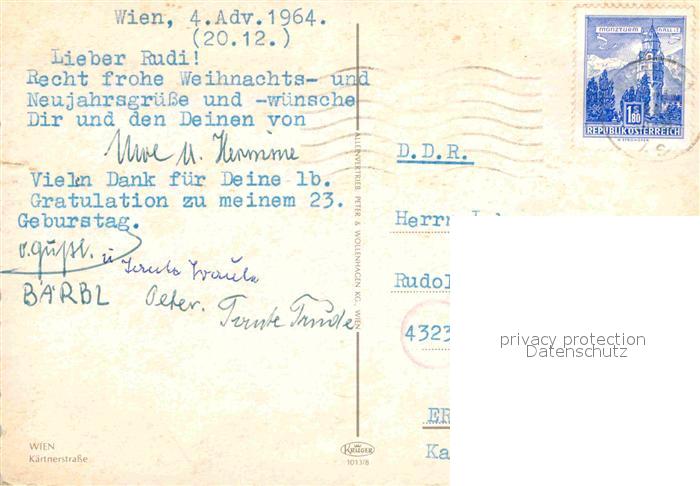 Wien, 4.Adv.1964.
(20.12.)
Lieber Rudi!
Recht frohe Weihnachts- und
Neujahrsgrüße und -wünsche
Dir und den Deinen von
Uwe u. Hermine
Vieln Dank für Deine lb.
Gratulation zu meinem 23.
Geburstag.
u Tante
BÄRBL Peter. Tante Trude
WIEN
Kärtnerstraße
ALLEINVERTRIEB PETER & WOLLENHAGEN KG., WIEN
KRÜGER
1013/8
MÜNZTURM HALL i. T.
S 1.80
REPUBLIK ÖSTERREICH
D.D.R.
Herrn
Rudol
4323
ER
Ka
privacy protection
Datenschutz